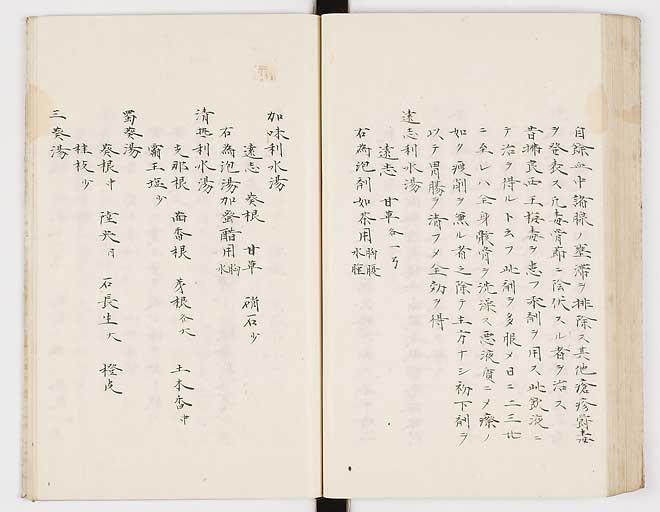 自餘血中諸腺ノ壅滞ヲ排除ス其他瘡疹欝毒
ヲ發表ス凡毒骨節ニ陰伏スル者ヲ治ス
昔拂良西王梅毒ヲ患フ本剤ヲ用ス此飲液ニ
テ治ヲ得ルト云フ此剤ヲ多服メ日ニ二三
ニ至レハ全身骸骨ヲ洗滌ス悪液質ニメ療ノ
如ク瘦削ヲ兼ル者之除テ上方ナシ初下剤ヲ
以テ胃腸ヲ清フメ全効ヲ得
遠志利水湯
遠志 甘草各一
右為泡剤如茶用胸腹水腫
加味利水湯
遠志 葵根 甘草 硝石少
右為泡湯加蜜醋用胸水
清涼利水湯
支那根 茴香根 茅根各大 土木香中
霸王塩少
蜀葵湯
葵根中 陸英 石長生大 橙皮
桂枝少
三葵湯